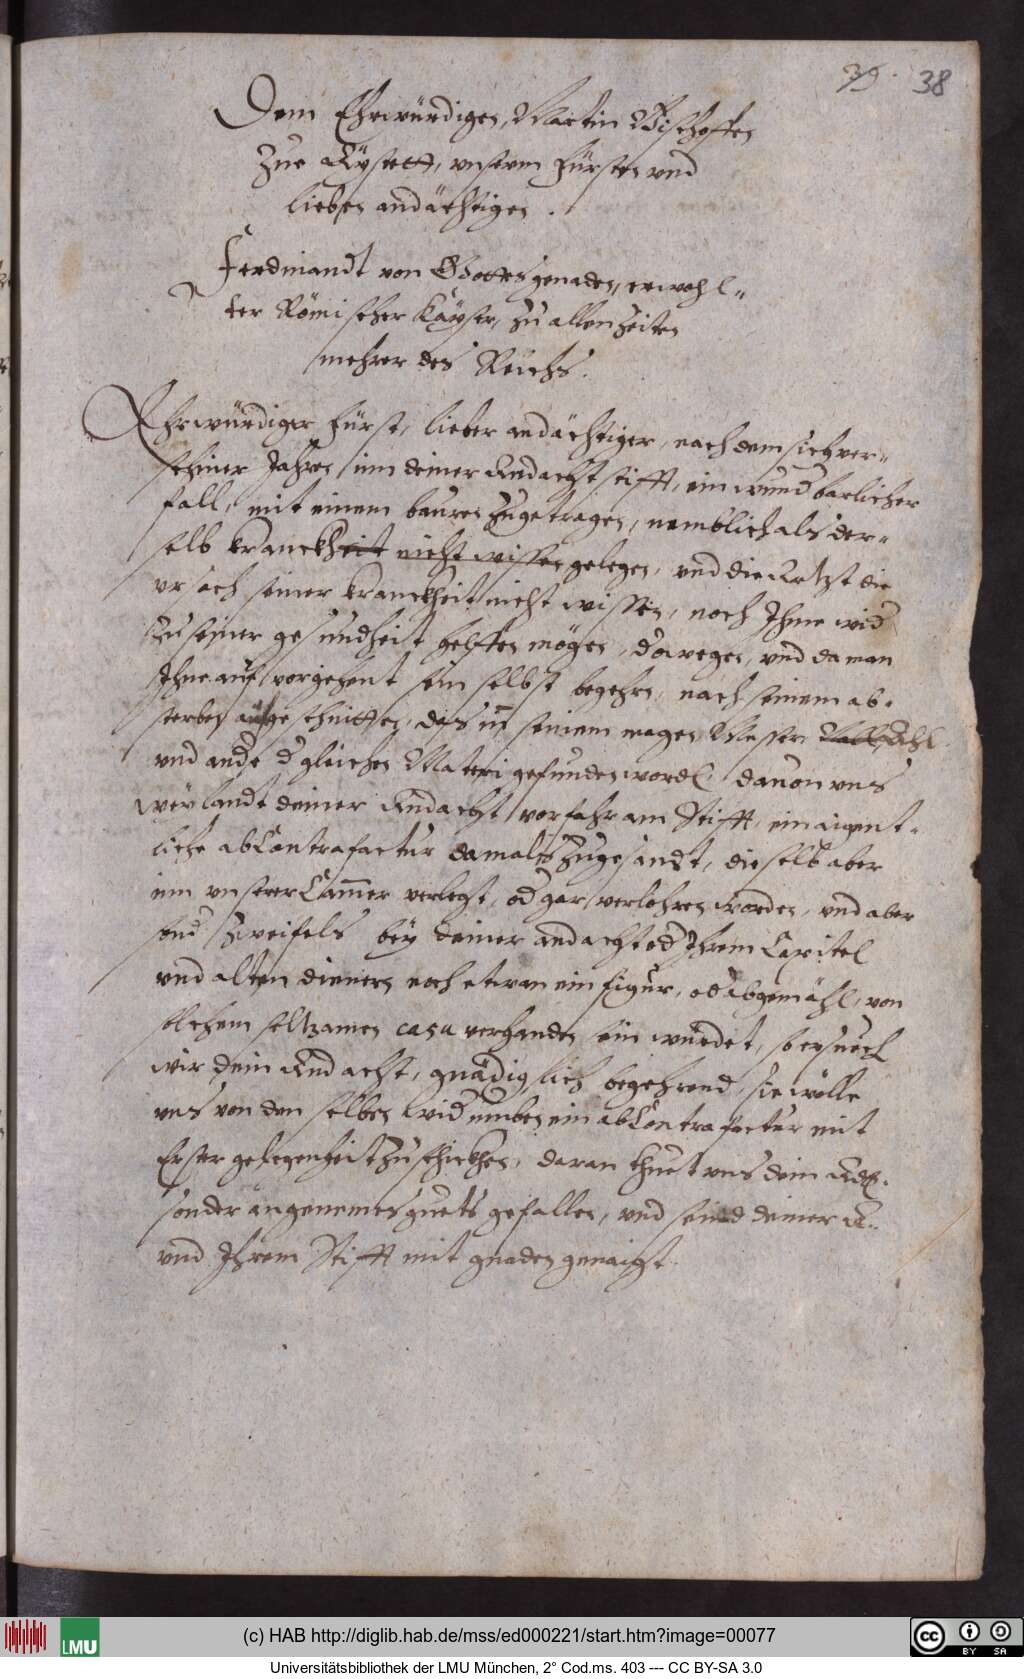 39 38
Dem Ehrwürdigen, Martin Bischoffen
Zue Eÿstett, unserm Fürsten und
lieben andächtigen.
Ferdinandt von Gottes genaden, erwohl=
ter Römischer Kaÿser, zu allen Zeiten
mehrer des Reichs.
Ehrwürdiger Fürst, lieber andächtiger, nach dem sich ver=
schiner Jahren inn deiner Andacht stifft, ein wund barlicher
fall, mit einem bauren zugetragen, nemblich als der=
selb kranckheit nicht wissen gelegen, und die Artzt die
ursach seiner kranckheit nicht wissen, noch Ihme wid
zu seiner gesundheit helffen mögen, derwegen, und da man
Ihne auf vorgehent sein selbst begehren, nach seinem ab=
sterben aufgeschnitten, das in seinem magen Messer
und andere dgleichen Materi gefunden worden, dauon uns
weÿlandt deiner Andacht vorfahr am Stifft, ein aigent=
liche abContrafactur damals zugesandt, dieselb aber
inn unserer Camer verlegt, od gar verlohren worden, und aber
sond zweifels beÿ deiner andacht od Ihrem Capitel
und alten dienern noch etwan ein figur, od abgemähl, von
solchem seltzamen casu verhanden sein wurdet, so ersuech
wir dein Andacht, gnädiglich begehrend, sie wölle
uns von den selben widerumben ein abContrafactur mit
Erster gelegenheit zuschickhen, daran thuet uns dein And.
sonder angenemes guets gefallen, und seind deiner A.
und Ihrem Stifft mit gnaden genaigt.
(c) HAB http://diglib.hab.de/mss/ed000221/start.htm?image=00077
LMU
cc BY SA
Universitätsbibliothek der LMU München, 2° Cod.ms. 403 --- CC BY-SA 3.0